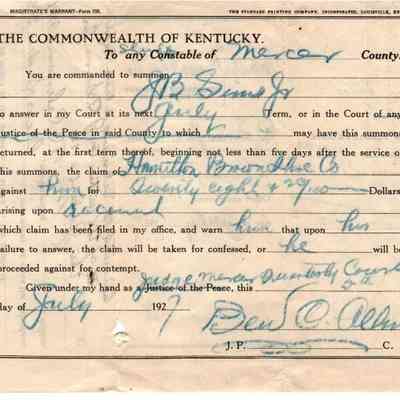 MAGISTRATE'S WARRANT—Form 225. THE STANDARD PRINTING COMPANY, INCORPORATED, LOUISVILLE, KY
THE COMMONWEALTH OF KENTUCKY.
To any Constable of Mercer County
You are commanded to summon J B Sims Jr
to answer in my Court at its next July Term, or in the Court of any
Justice of the Peace in said County to which may have this summons
returned, at the first term thereof, beginning not less than five days after the service of
this summons, the claim of Hamilton Brown Shoe Co
against him for Twenty eight & 29/100 Dollars
arising upon account
which claim has been filed in my office, and warn him that upon his
failure to answer, the claim will be taken for confessed, or he will be
proceeded against for contempt.
Given under my hand as a Justice of the Peace, this
Judge Mercer Quarterly Court
day of July 1927 Ben C. Allin
J. P. C.